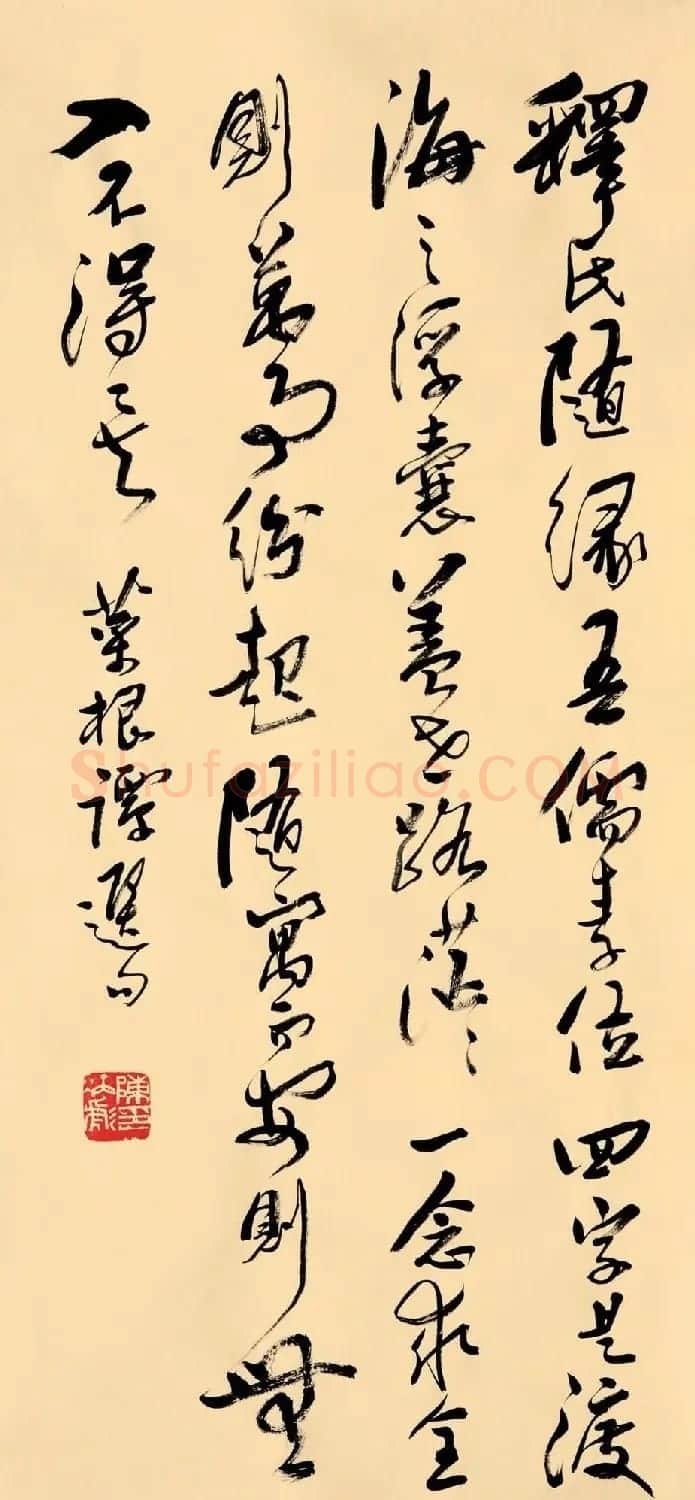 釋氏隨緣吾儒素位四字是渡
海之浮囊蓋世路茫〻一念求全
則萬事紛起隨寓而安則無
入不得矣
菜根譚選句
Shufaziliao.COM